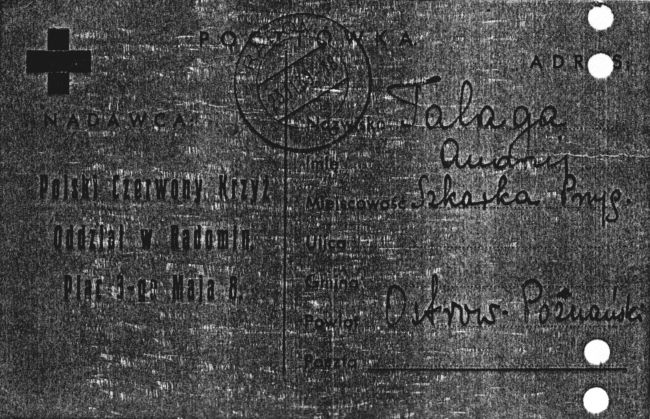 POCZTÓWKA
ADRES:
NADAWCA:
Polski Czerwony Krzyż
Oddział w Radomiu
Plac 3-go Maja 8.
Nazwisko Talaga
Imię Andrzej
Miejscowość Szkarka Przyg.
Ulica
Gmina
Powiat Ostrow. Poznański
Poczta